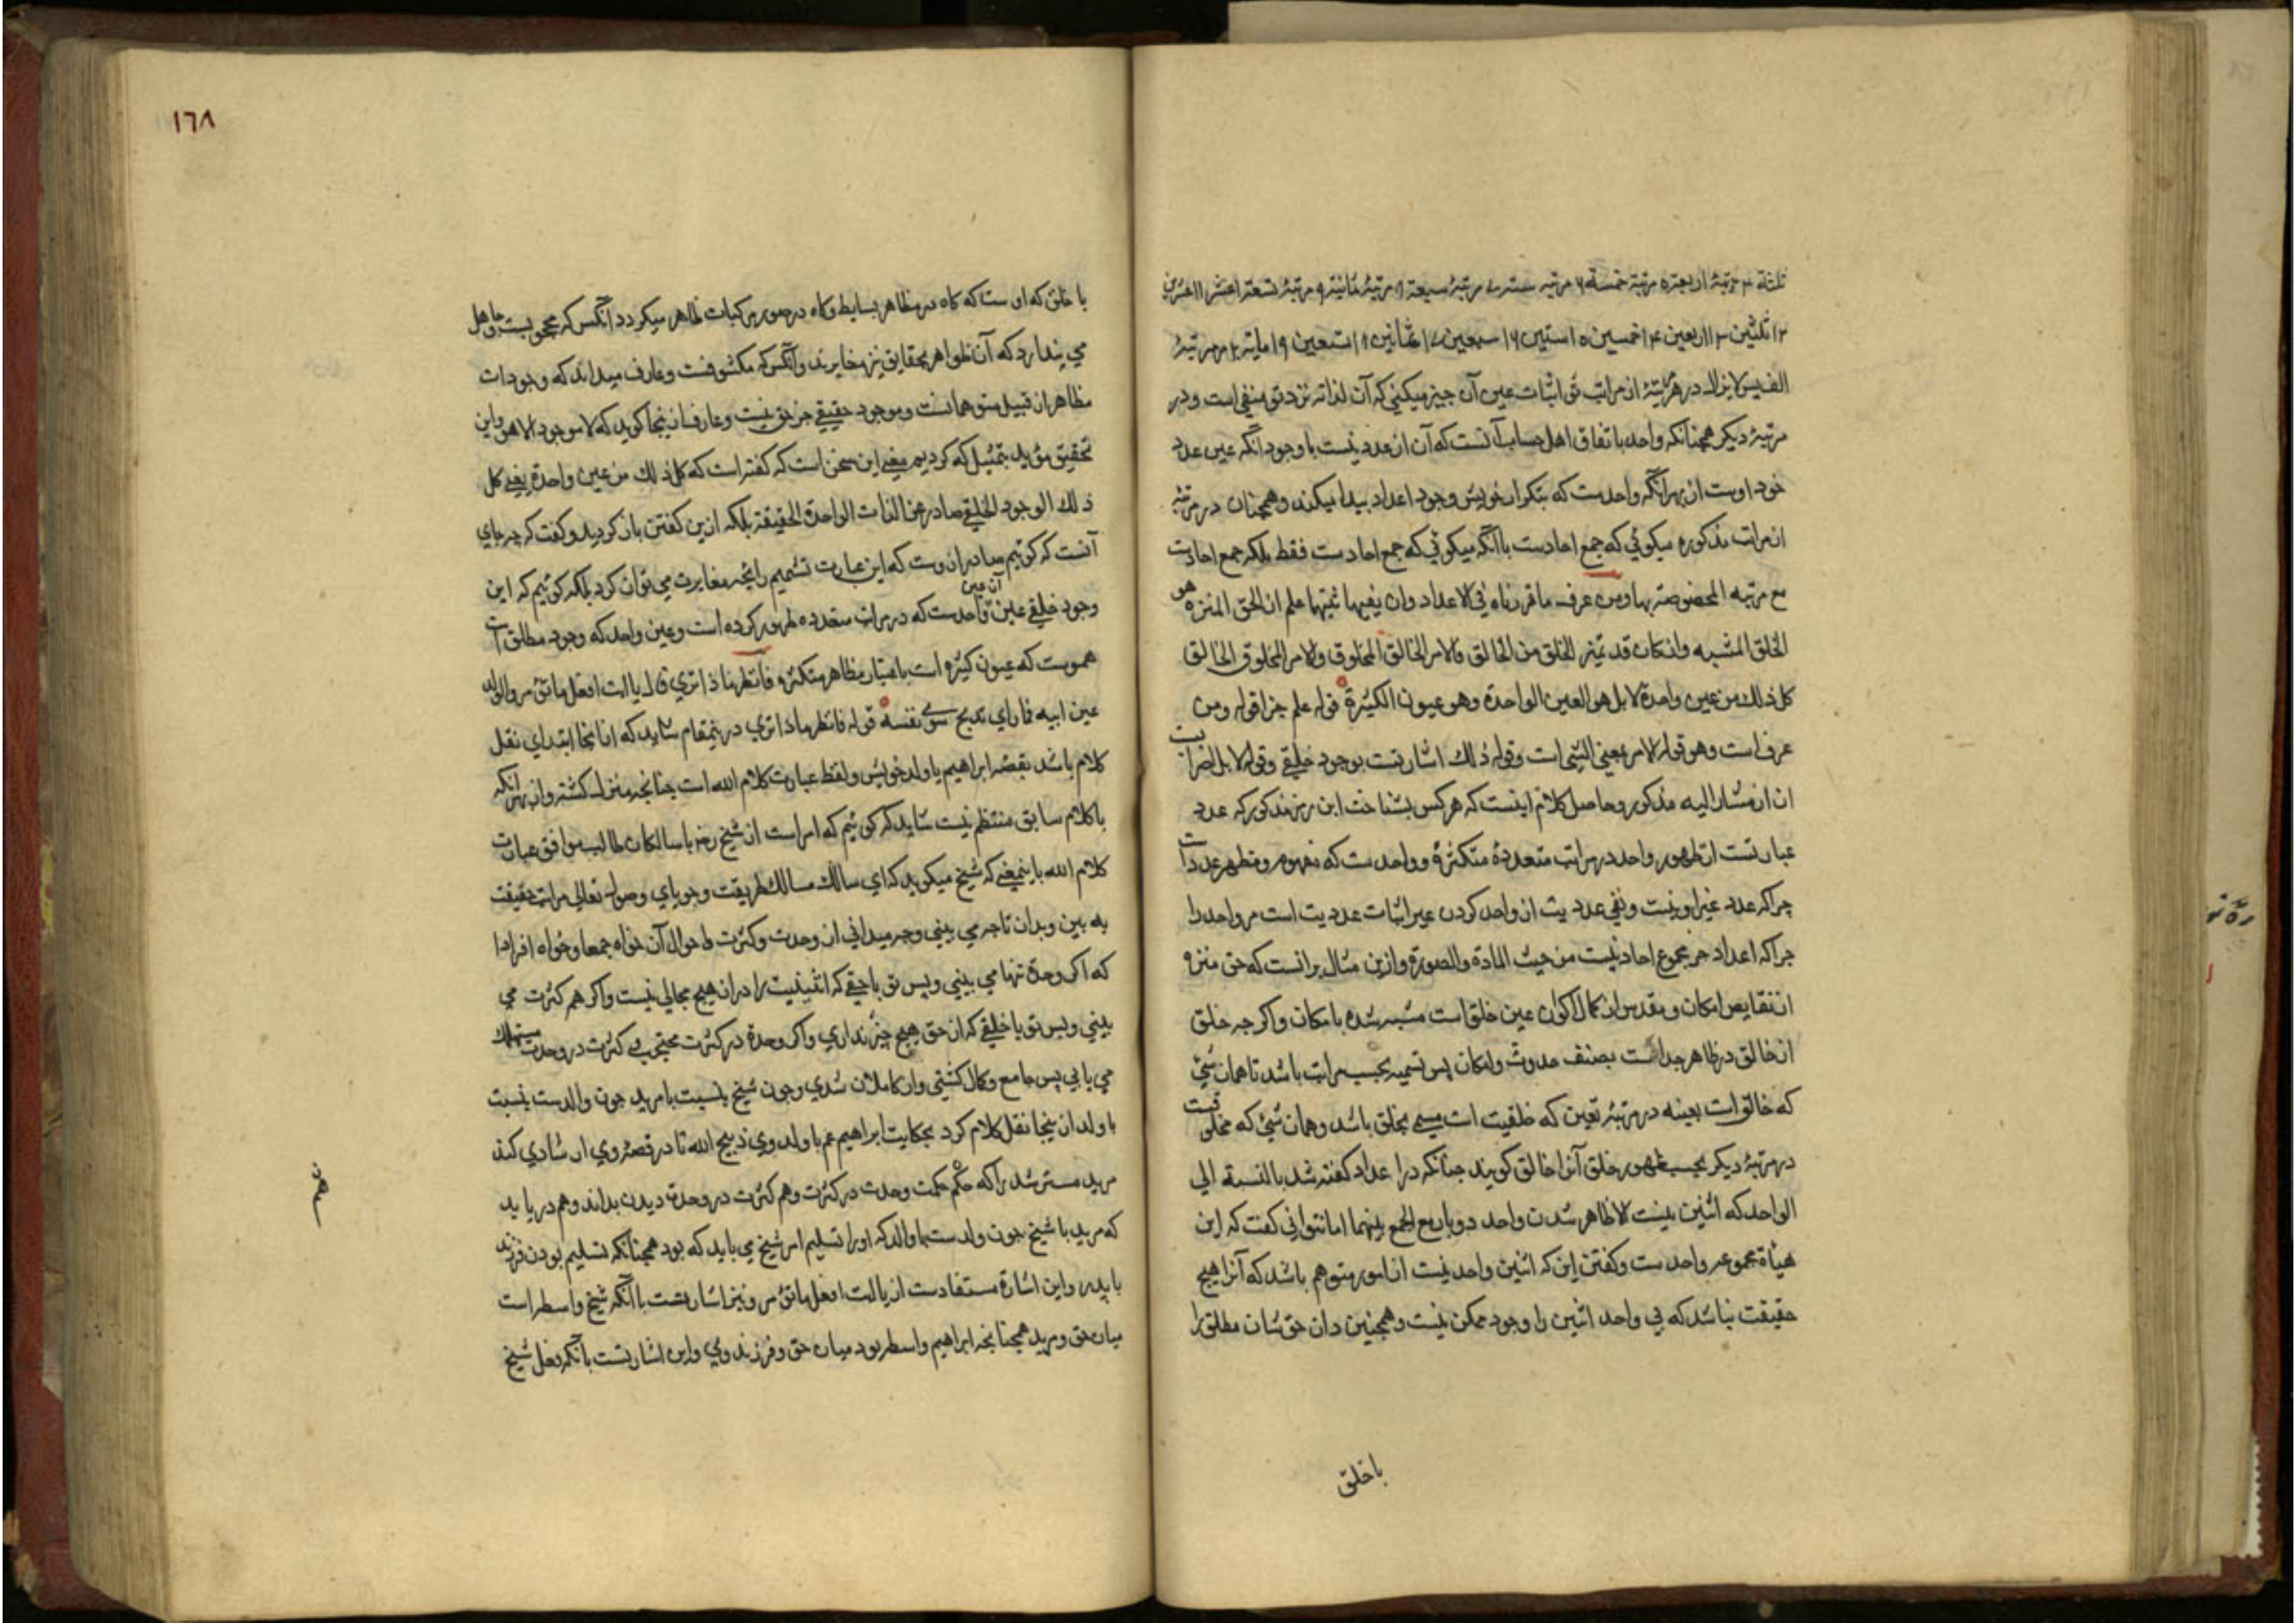 ثلثة ۴ مرتبهٔ اربعة ۵ مرتبهٔ خمسة ۶ مرتبه ستة ۷ مرتبهٔ سبعة ۸ مرتبهٔ ثمانیة ۹ مرتبهٔ تسعة ۱۰ عشر ۱۱ عشرین
۱۲ ثلثین ۱۳ اربعین ۱۴ خمسین ۱۵ ستین ۱۶ سبعین ۱۷ ثمانین ۱۸ تسعین ۱۹ مایة ۲۰ مرتبهٔ
الف پس لا یزال در هر مرتبهٔ از مراتب تو اثبات عین آن چیز میکنی که آن لذاته نزد تو منفی است و در
مرتبهٔ دیکر همچنانکه واحد باتفاق اهل حساب آنست که آن از عدد نیست باوجود آنکه عین عدد
خود اوست از بهر آنکه واحدست که بتکرار خویش وجود اعداد پیدا میکند و همچنان در مرتبهٔ
از مراتب مذکوره میکوئی که جمع احادست با آنکه میکوئی که جمع احادست فقط بلکه جمع احادست
مع مرتبه المخصوصة بها ومن عرف ما قررناه فی الاعداد وان نفیها ثبتها علم ان الحق المنزه هو
الخلق المشبه وان کان قد تمیز الخلق من الخالق فالامر الخالق المخلوق والامر المخلوق الخالق
کل ذلك من عین واحدة لا بل هو العین الواحدة وهو عیون الکثیرة قوله علم جزا قوله ومن
عرف است وهو قوله الامر بمعنی الشی است وقوله ذلك اشارتست بوجود خلقی وقوله لا بل اضرابست
از مشار الیه مذکور وحاصل کلام اینست که هر کس بشناخت این رمز مذکور که عدد
عبارتست از ظهور واحد در مراتب متعددهٔ متکثرهٔ و واحدست که مفهوم و مظهر عددست
چرا که عدد غیر او نیست و نفی عددیت از واحد کردن عین اثبات عددیت است مر واحد را
چرا که اعداد جز مجموع احاد نیست من حیث المادة والصورة وازین مثال برانست که حق منزه
از نقایص امکان ومقدس از کمال اکوان عین خلق است مشبه شده بامکان واکر چه خلق
از خالق در ظاهر جداست بصنف حدوث وامکان پس تسمیه بحسب مراتب باشد تا همان شئ
که خالق است بعینه در مرتبهٔ تعین که خلقیت است مسمی بخلق باشد و همان شئ که مخلوقیست
در مرتبهٔ دیکر بحسب ظهور خلق آنرا خالق کویند چنانکه در اعداد کفته شد بالنسبة الی
الواحد که اثنین نیست الا ظاهر شدن واحد دوبار مع الجمع بینهما اما نتوانی کفت که این
هیأة مجموعه واحدست و کفتن این که اثنین واحد نیست از امور متوهم باشد که آنرا هیچ
حقیقت نباشد که بی واحد اثنین را وجود ممکن نیست و همچنین دان حق شان مطلق را
با خلق
۱۶۸
با خلق که اوست که کاه در مظاهر بسایط و کاه در صور مرکبات ظاهر میکردد آنکس که محجوبست و جاهل
می پندارد که آن ظواهر بحقایق نیز مغایرند و آنکس که مکشوفست و عارف میداند که وجودات
مظاهر از قبیل متوهمانست و موجود حقیقی جز حق نیست و عارفان اینجا کویند که لا موجود الا هو و این
تحقیق مؤید بتمثیل که کردیم معنی این سخن است که کفته است که کل ذلك من عین واحدة یعنی کل
ذلك الوجود الخلقی صادر من الذات الواحدة الحقیقة بلکه ازین کفتن باز کردید و کفت که چه جای
آنست که کوئیم صادر از وست که این عبارت تشمیم رایحهٔ مغایرت می توان کرد بلکه کوئیم که این
وجود خلقی عین آن عین واحدست که در مراتب متعدده ظهور کرده است و عین واحد که وجود مطلق است
هموست که عیون کثیره است باعتبار مظاهر متکثره فانظر ماذا تری قال یا ابت افعل ما تؤمر والولد
عین ابیه فما رای یذبح سوی نفسه قوله فانظر ماذا تری درینمقام شاید که از اینجا ابتدای نقل
کلام باشد بقصهٔ ابراهیم با ولد خویش و لفظ عبارت کلام الله است چنانچه منزل کشته و از بهر آنکه
با کلام سابق منتظم نیست شاید که کوئیم که امر است از شیخ رض با سالکان طالب موافق عبارت
کلام الله باینمعنی که شیخ میکوید که ای سالك مسالك طریقت و جویای وصول تعالی مراتب حقیقت
به بین و بدان تا چه می بینی و چه میدانی از وحدت و کثرت و احوال آن خواه جمعا و خواه افرادا
که اکر وحدة تنها می بینی و بس تو با حقی که اثنینیت را در ان هیچ مجالی نیست و اکر هم کثرت می
بینی و بس تو با خلقی که از حق هیچ چیز نداری و اکر وحدة در کثرت محتجب و کثرت در وحدت مستهلك
می یابی پس جامع و کمال کشتی و از کاملان شدی و چون شیخ بنسبت با مرید چون والدست بنسبت
با ولد از اینجا نقل کلام کرد بحکایت ابراهیم عم با ولد وی ذبیح الله تا در قصهٔ وی ارشادی کند
مرید مسترشد را که حکم حکمت وحدت در کثرت و هم کثرت در وحدت دیدن بداند و هم دریابد
که مرید با شیخ چون ولدست با والد که او را تسلیم امر شیخ می باید که بود همچنانکه تسلیم بودن فرزند
با پدر و این اشارة مستفادست از یا ابت افعل ما تؤمر و نیز اشارتست با آنکه شیخ واسطه است
میان حق و مرید همچنانچه ابراهیم واسطه بود میان حق و فرزند وی و این اشارتست بآنکه فعل شیخ